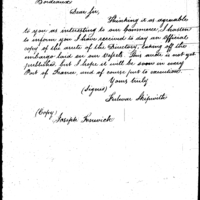 Bordeaux
Dear Sir,
Thinking it as agreeable
to you as interesting to our Commerce I hasten
to inform you I have received to day an Official
copy of the arete of the Directory, taking off the
embargo laid on our Vessels. This arete is not yet
published, but I hope it will be soon in every
Port of France, and of course put to execution.
Yours truly
(Signed)
Fulwar Skipwith
(Copy)
Joseph Fenwick